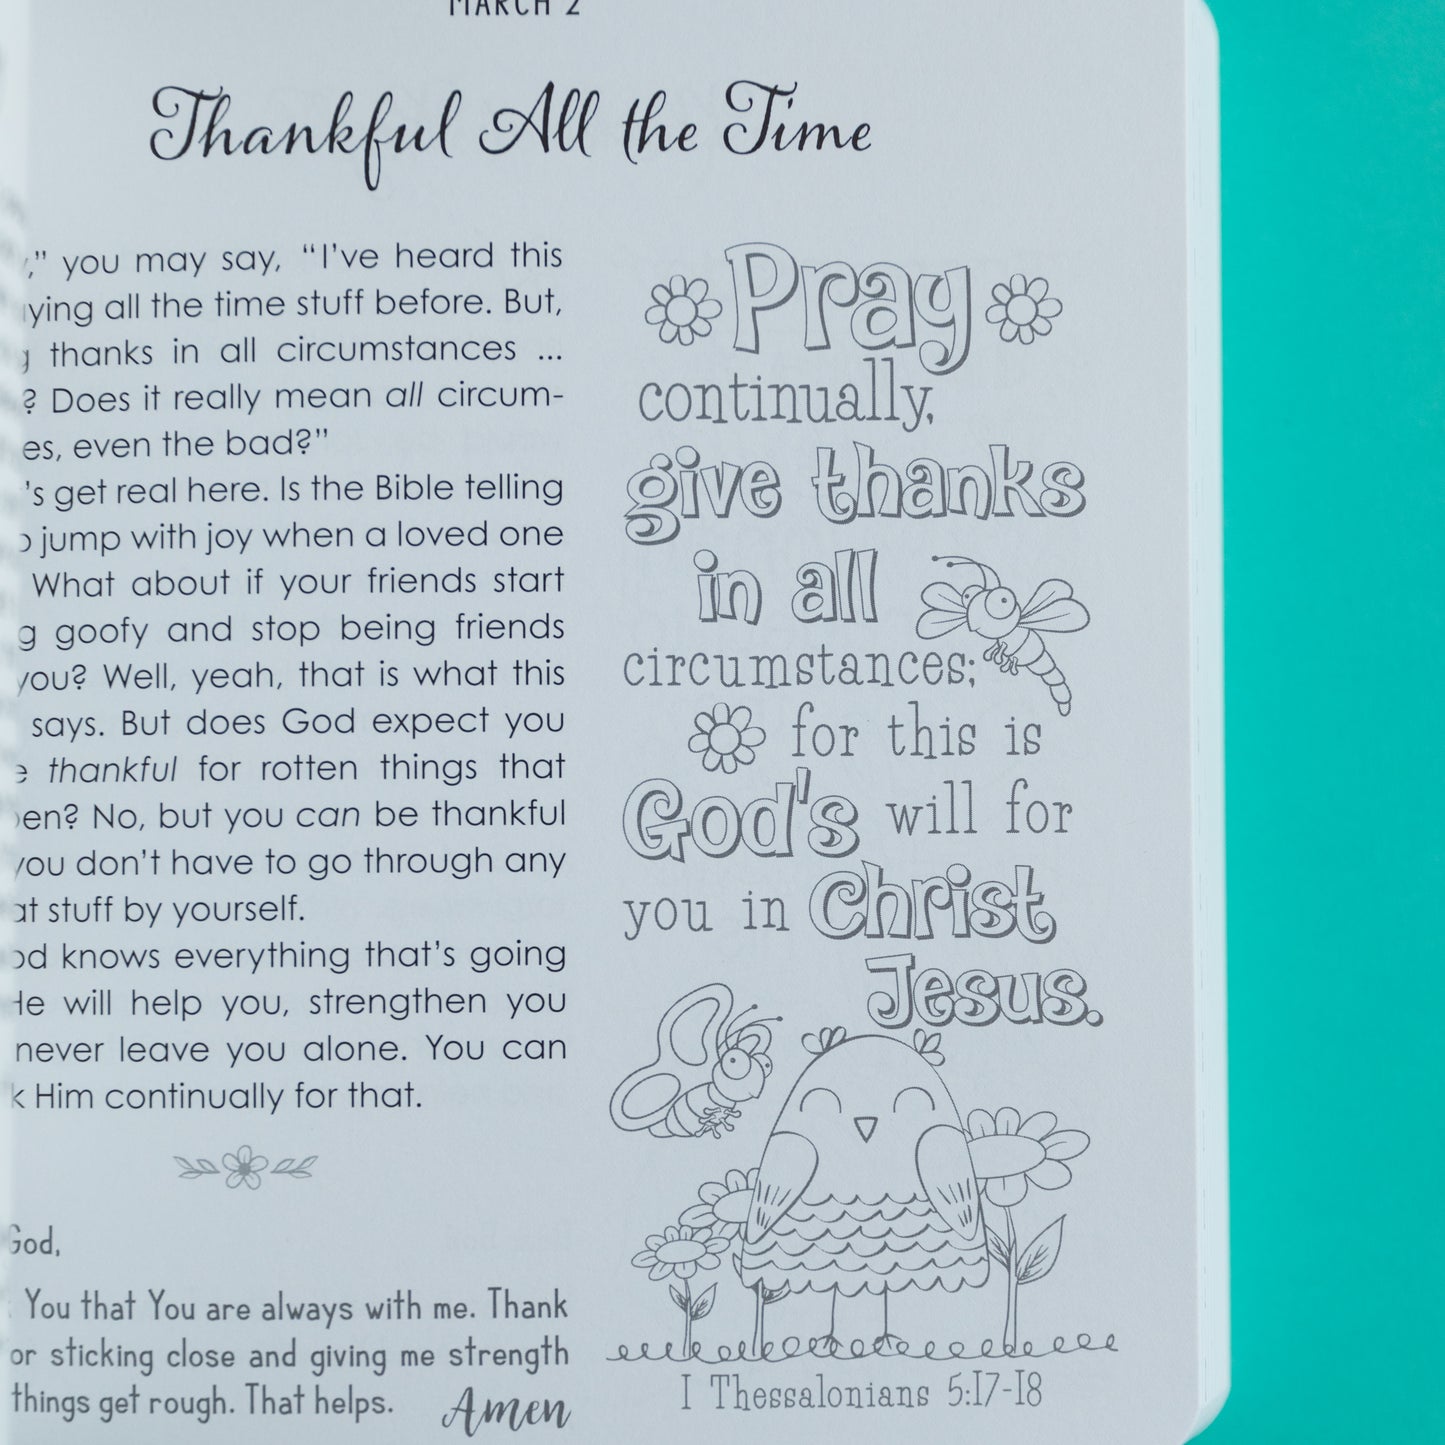 MARCH 2
Thankful All the Time
," you may say, "I've heard this
ying all the time stuff before. But,
thanks in all circumstances ...
? Does it really mean all circum-
es, even the bad?"
's get real here. Is the Bible telling
jump with joy when a loved one
What about if your friends start
g goofy and stop being friends
you? Well, yeah, that is what this
says. But does God expect you
e thankful for rotten things that
en? No, but you can be thankful
you don't have to go through any
at stuff by yourself.
od knows everything that's going
He will help you, strengthen you
never leave you alone. You can
k Him continually for that.
God,
You that You are always with me. Thank
or sticking close and giving me strength
things get rough. That helps.
Amen
Pray
continually,
give thanks
in all
circumstances;
for this is
God's will for
you in Christ
Jesus.
1 Thessalonians 5:17-18